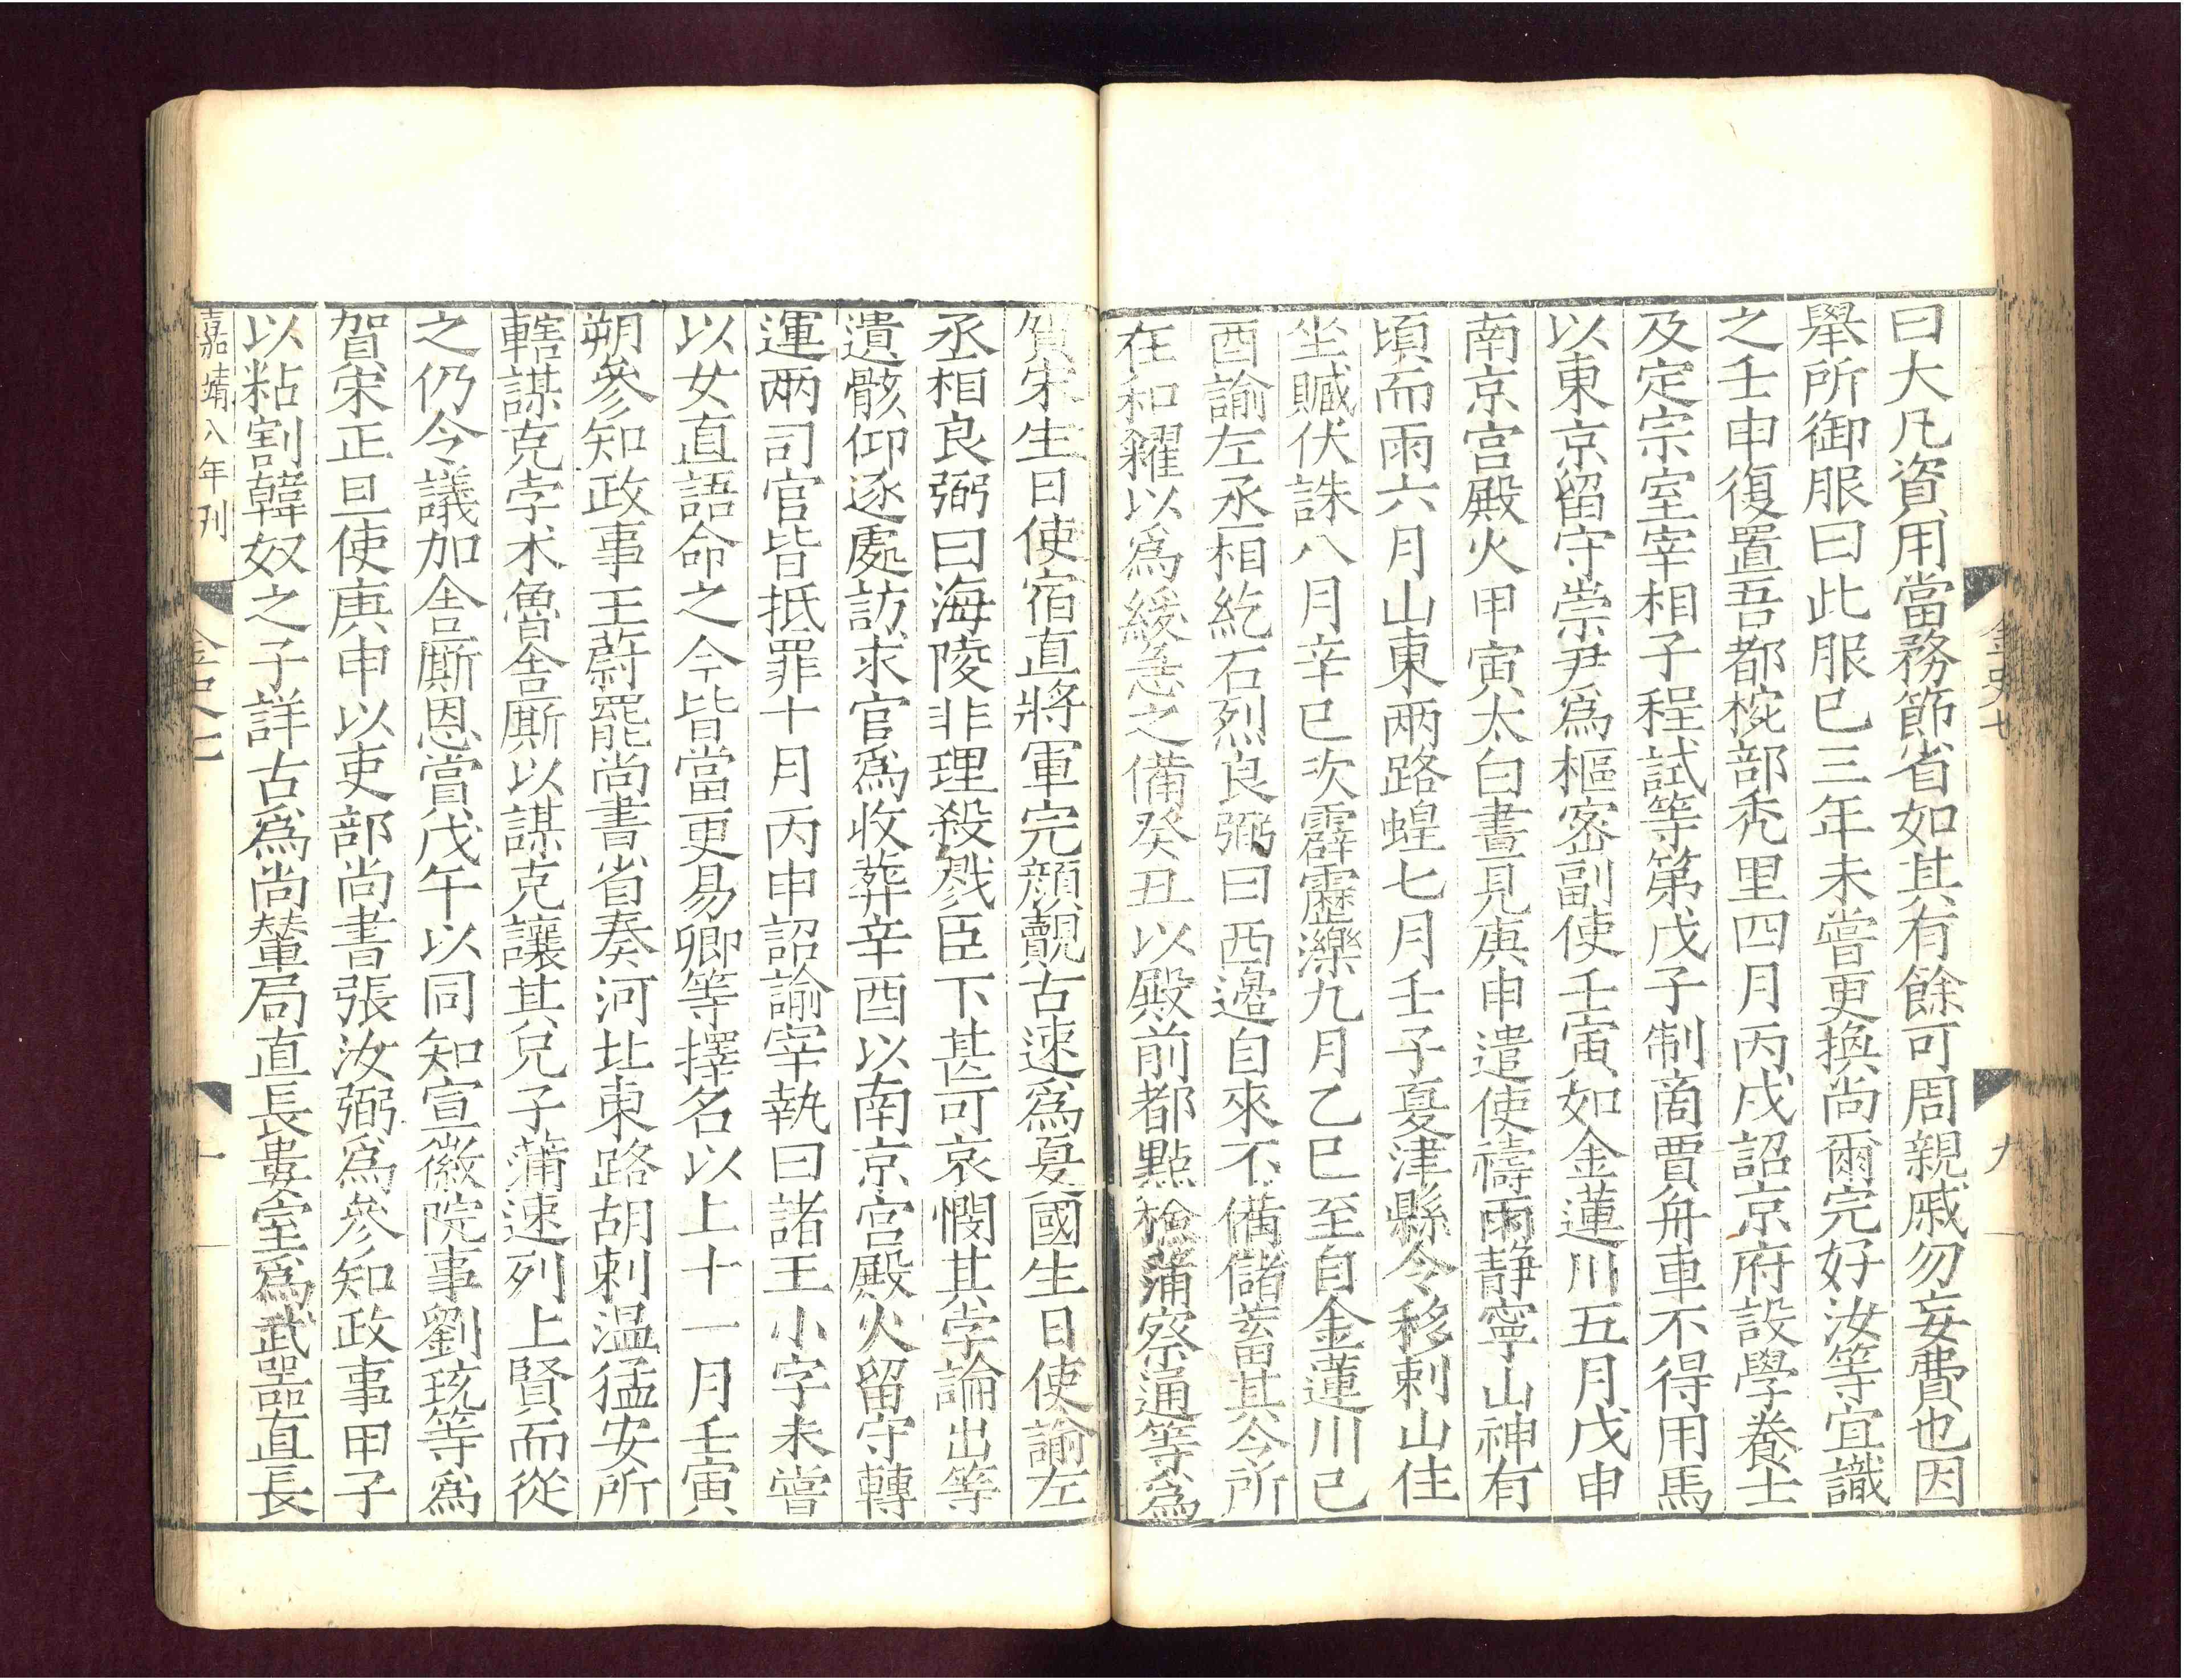 金史七
九
曰大凡資用當務節省如其有餘可周親戚勿妄費也因
舉所御服曰此服已三年未嘗更換尚爾完好汝等宜識
之壬申復置吾都椀部禿里四月丙戌詔京府設學養士
及定宗室宰相子程試等第戊子制商賈舟車不得用馬
以東京留守崇尹爲樞密副使壬寅如金蓮川五月戊申
南京宮殿火甲寅太白晝見庚申遣使禱雨靜寧山神有
頃而雨六月山東兩路蝗七月壬子夏津縣令移剌山住
坐贓伏誅八月辛巳次霹靂濼九月乙巳至自金蓮川己
酉諭左丞相紇石烈良弼曰西邊自來不備儲蓄其令所
在和糴以爲緩急之備癸丑以殿前都點檢蒲察通等爲
賀宋生日使宿直將軍完顏覿古速爲夏國生日使諭左
丞相良弼曰海陵非理殺戮臣下甚可哀憫其孛論出等
遺骸仰逐處訪求官爲收葬辛酉以南京宮殿火留守轉
運兩司官皆抵罪十月丙申詔諭宰執曰諸王小字未嘗
以女直語命之今皆當更易卿等擇名以上十一月壬寅
朔參知政事王蔚罷尚書省奏河北東路胡剌温猛安所
轄謀克孛朮魯舍厮以謀克讓其兄子蒲速列上賢而從
之仍令議加舍厮恩賞戊午以同知宣徽院事劉珫等爲
賀宋正旦使庚申以吏部尚書張汝弼爲參知政事甲子
以粘割韓奴之子詳古爲尚輦局直長婁室爲武器直長
嘉靖八年刊
金史七
十